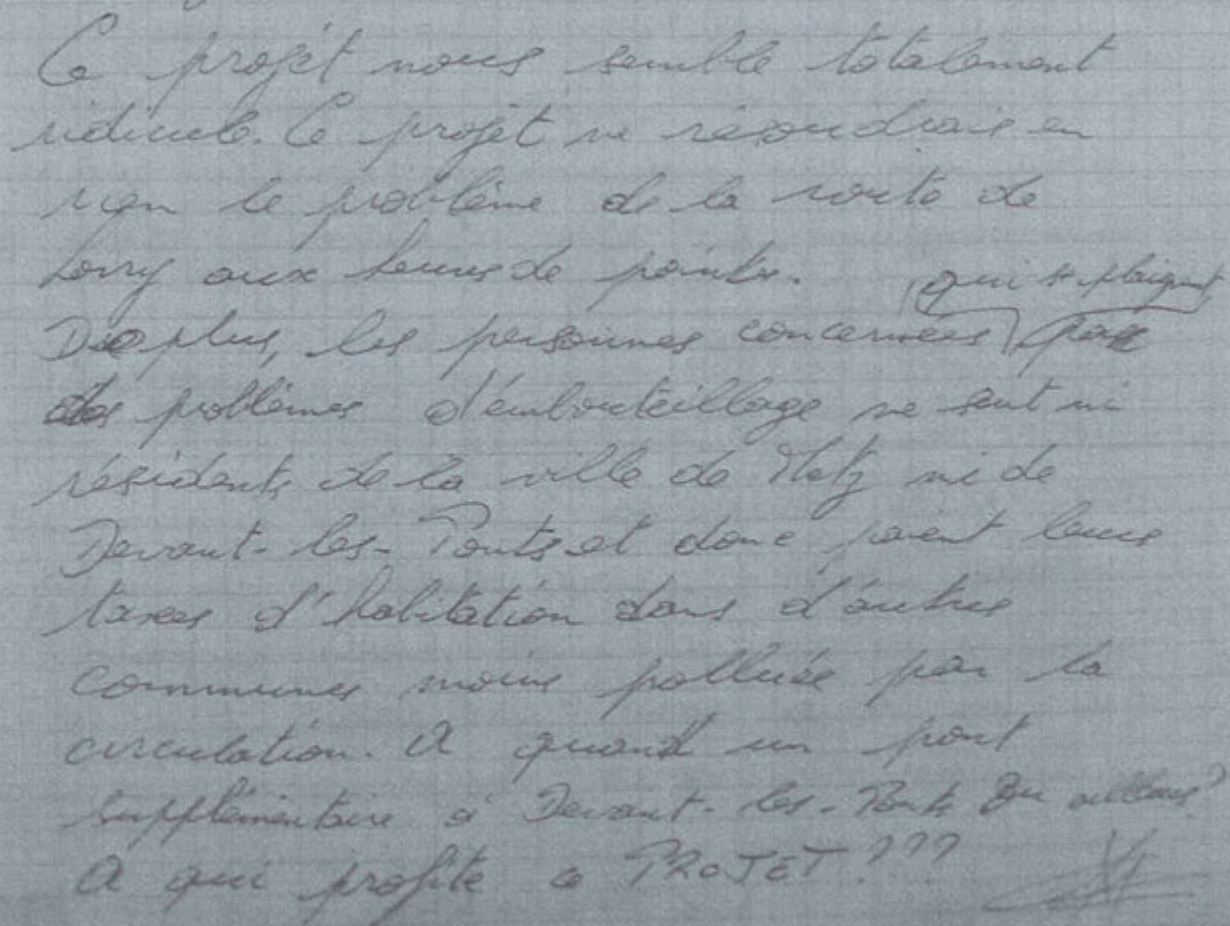 Ce projet nous semble totalement
ridicule. Ce projet ne résoudrais en
rien le problème de la route de
Lorry aux heures de pointe.
qui se plaignent
De plus, les personnes concernées
des problèmes d'embouteillage ne sont ni
résidents de la ville de Metz ni de
Devant-les-Ponts et donc paient leurs
taxes d'habitation dans d'autres
communes moins polluée par la
circulation. A quand un pont
supplémentaire à Devant-les-Ponts ou ailleurs?
A qui profite ce PROJET???